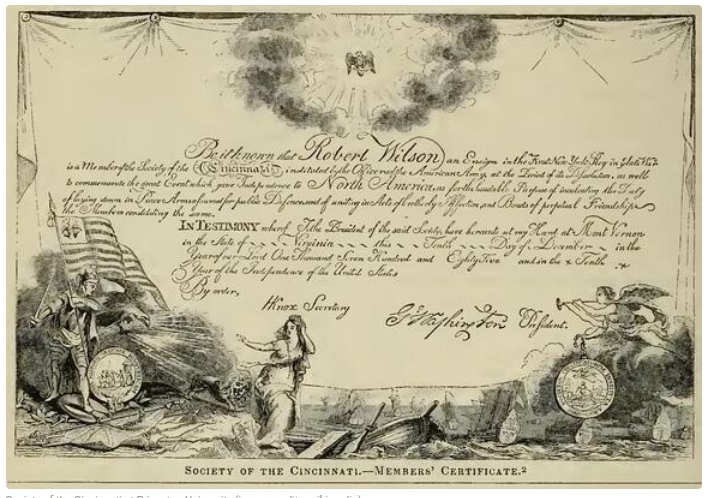 Be it known that Robert Wilson an Ensign in the First New York Reg in State
is a Member of the Society of the Cincinnati instituted by the Officers of the American Army, at the Period of its Dissolution, as well
to commemorate the great Event which gave Independence to North America, as for the laudable Purpose of inculcating the Duty
of laying down in Peace Arms assumed for public Defence, and of uniting in Acts of brotherly Affection, and Bonds of perpetual Friendship
the Members constituting the same.
IN TESTIMONY whereof I, the President of the said Society, have hereunto set my Hand at Mont Vernon
in the State of Virginia this Tenth Day of December in the
Year of our Lord One Thousand Seven Hundred and Eighty Five and in the Tenth
Year of the Independence of the United States
By order,
HKnox Secretary
Go Washington President.
SOCIETY OF THE CINCINNATI.—MEMBERS' CERTIFICATE.2